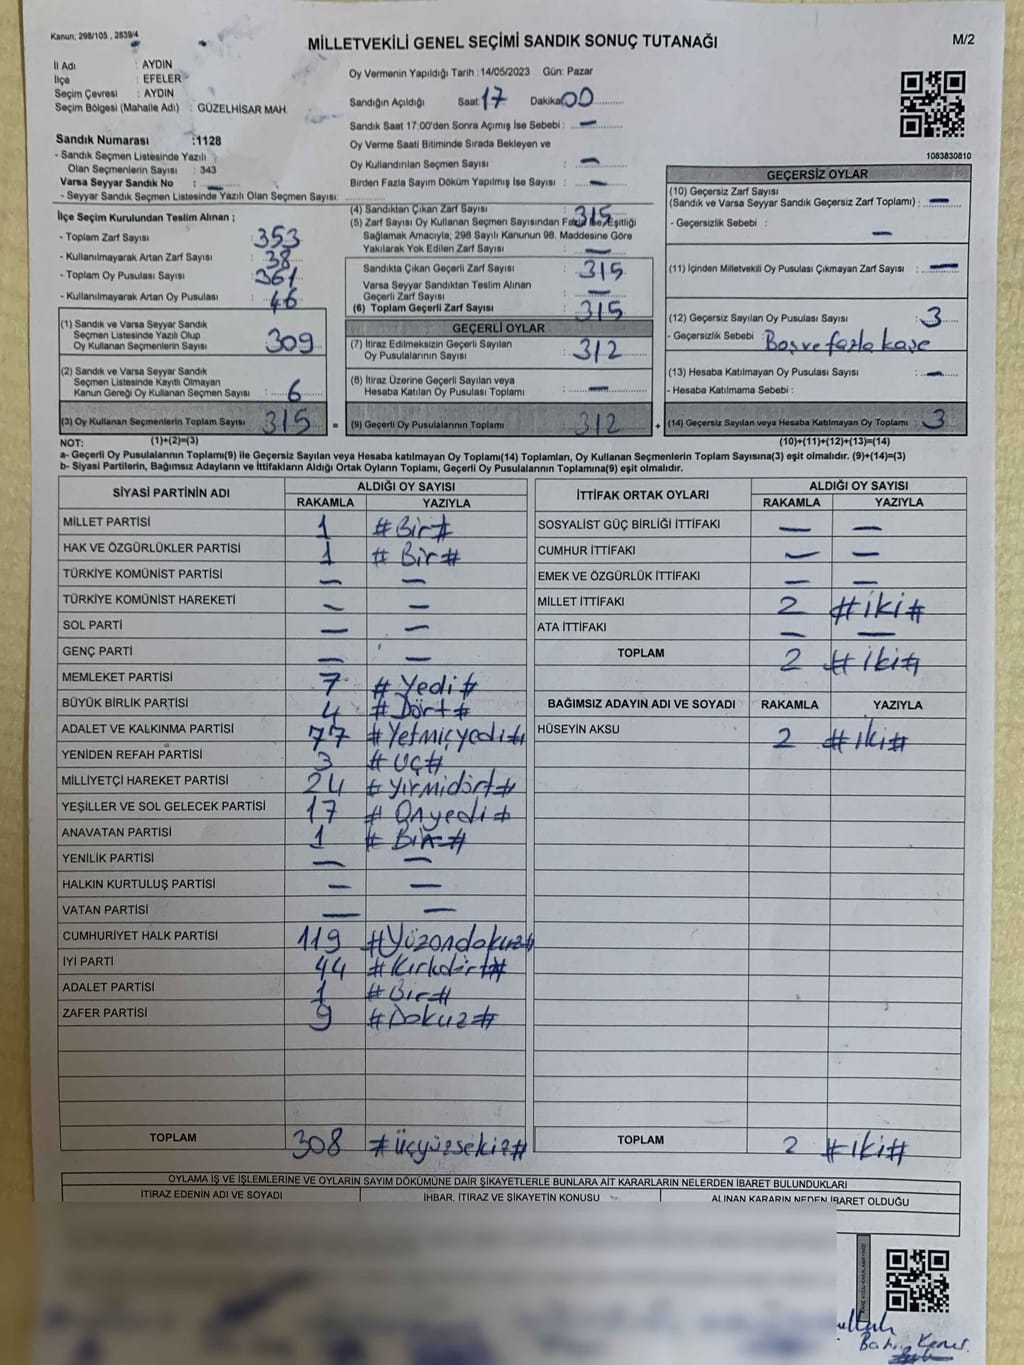 Kanun, 298/105 , 2839/4
MİLLETVEKİLİ GENEL SEÇİMİ SANDIK SONUÇ TUTANAĞI
M/2
İl Adı : AYDIN
İlçe : EFELER
Seçim Çevresi : AYDIN
Seçim Bölgesi (Mahalle Adı) : GÜZELHİSAR MAH.
Sandık Numarası :1128
- Sandık Seçmen Listesinde Yazılı
Olan Seçmenlerin Sayısı : 343
Varsa Seyyar Sandık No : —
- Seyyar Sandık Seçmen Listesinde Yazılı Olan Seçmen Sayısı:
Oy Vermenin Yapıldığı Tarih :14/05/2023 Gün: Pazar
Sandığın Açıldığı Saat: 17 Dakika 00
Sandık Saat 17:00'den Sonra Açımış İse Sebebi : —
Oy Verme Saati Bitiminde Sırada Bekleyen ve
Oy Kullandırılan Seçmen Sayısı : —
Birden Fazla Sayım Döküm Yapılmış İse Sayısı : —
1083830810
İlçe Seçim Kurulundan Teslim Alınan ;
- Toplam Zarf Sayısı : 353
- Kullanılmayarak Artan Zarf Sayısı : 38
- Toplam Oy Pusulası Sayısı : 361
- Kullanılmayarak Artan Oy Pusulası : 46
(1) Sandık ve Varsa Seyyar Sandık
Seçmen Listesinde Yazılı Olup
Oy Kullanan Seçmenlerin Sayısı : 309
(2) Sandık ve Varsa Seyyar Sandık
Seçmen Listesinde Kayıtlı Olmayan
Kanun Gereği Oy Kullanan Seçmen Sayısı : 6
(3) Oy Kullanan Seçmenlerin Toplam Sayısı 315 =
(4) Sandıktan Çıkan Zarf Sayısı : 315
(5) Zarf Sayısı Oy Kullanan Seçmen Sayısından Fazla İse, Eşitliği
Sağlamak Amacıyla, 298 Sayılı Kanunun 98. Maddesine Göre
Yakılarak Yok Edilen Zarf Sayısı : —
Sandıkta Çıkan Geçerli Zarf Sayısı : 315
Varsa Seyyar Sandıktan Teslim Alınan
Geçerli Zarf Sayısı : —
(6) Toplam Geçerli Zarf Sayısı : 315
GEÇERLİ OYLAR
(7) İtiraz Edilmeksizin Geçerli Sayılan
Oy Pusulalarının Sayısı : 312
(8) İtiraz Üzerine Geçerli Sayılan veya
Hesaba Katılan Oy Pusulası Toplamı : —
(9) Geçerli Oy Pusulalarının Toplamı 312 +
GEÇERSİZ OYLAR
(10) Geçersiz Zarf Sayısı
(Sandık ve Varsa Seyyar Sandık Geçersiz Zarf Toplamı) : —
- Geçersizlik Sebebi : —
(11) İçinden Milletvekili Oy Pusulası Çıkmayan Zarf Sayısı : —
(12) Geçersiz Sayılan Oy Pusulası Sayısı : 3
- Geçersizlik Sebebi : Boş ve fazla kaşe
(13) Hesaba Katılmayan Oy Pusulası Sayısı : —
- Hesaba Katılmama Sebebi :
(14) Geçersiz Sayılan veya Hesaba Katılmayan Oy Toplamı : 3
NOT: (1)+(2)=(3) (10)+(11)+(12)+(13)=(14)
a- Geçerli Oy Pusulalarının Toplamı(9) ile Geçersiz Sayılan veya Hesaba katılmayan Oy Toplamı(14) Toplamları, Oy Kullanan Seçmenlerin Toplam Sayısına(3) eşit olmalıdır. (9)+(14)=(3)
b- Siyasi Partilerin, Bağımsız Adayların ve İttifakların Aldığı Ortak Oyların Toplamı, Geçerli Oy Pusulalarının Toplamına(9) eşit olmalıdır.
SİYASİ PARTİNİN ADI ALDIĞI OY SAYISI
RAKAMLA YAZIYLA
MİLLET PARTİSİ 1 # Bir #
HAK VE ÖZGÜRLÜKLER PARTİSİ 1 # Bir #
TÜRKİYE KOMÜNİST PARTİSİ — —
TÜRKİYE KOMÜNİST HAREKETİ — —
SOL PARTİ — —
GENÇ PARTİ — —
MEMLEKET PARTİSİ 7 # Yedi #
BÜYÜK BİRLİK PARTİSİ 4 # Dört #
ADALET VE KALKINMA PARTİSİ 77 # Yetmişyedi #
YENİDEN REFAH PARTİSİ 3 # Üç #
MİLLİYETÇİ HAREKET PARTİSİ 24 # Yirmidört #
YEŞİLLER VE SOL GELECEK PARTİSİ 17 # Onyedi #
ANAVATAN PARTİSİ 1 # Bir #
YENİLİK PARTİSİ — —
HALKIN KURTULUŞ PARTİSİ — —
VATAN PARTİSİ — —
CUMHURİYET HALK PARTİSİ 119 # Yüzondokuz #
İYİ PARTİ 44 # Kırkdört #
ADALET PARTİSİ 1 # Bir #
ZAFER PARTİSİ 9 # Dokuz #
TOPLAM 308 # Üçyüzsekiz #
İTTİFAK ORTAK OYLARI ALDIĞI OY SAYISI
RAKAMLA YAZIYLA
SOSYALİST GÜÇ BİRLİĞİ İTTİFAKI — —
CUMHUR İTTİFAKI — —
EMEK VE ÖZGÜRLÜK İTTİFAKI — —
MİLLET İTTİFAKI 2 # iki #
ATA İTTİFAKI — —
TOPLAM 2 # iki #
BAĞIMSIZ ADAYIN ADI VE SOYADI RAKAMLA YAZIYLA
HÜSEYİN AKSU 2 # iki #
TOPLAM 2 # iki #
OYLAMA İŞ VE İŞLEMLERİNE VE OYLARIN SAYIM DÖKÜMÜNE DAİR ŞİKAYETLERLE BUNLARA AİT KARARLARIN NELERDEN İBARET BULUNDUKLARI
İTİRAZ EDENİN ADI VE SOYADI İHBAR, İTİRAZ VE ŞİKAYETİN KONUSU ALINAN KARARIN NEDEN İBARET OLDUĞU